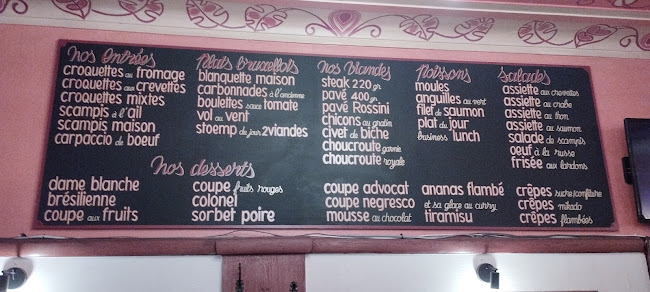 nos Entrées
croquettes au fromage
croquettes aux crevettes
croquettes mixtes
scampis à l'ail
scampis maison
carpaccio de boeuf
Plats bruxellois
blanquette maison
carbonnades à l'ancienne
boulettes sauce tomate
vol au vent
stoemp du jour 2viandes
nos Viandes
steak 220 gr.
pavé 400 gr.
pavé Rossini
chicons au gratin
civet de biche
choucroute garnie
choucroute royale
Poissons
moules
anguilles au vert
filet de saumon
plat du jour
business lunch
Salades
assiette aux crevettes
assiette au crabe
assiette au thon
assiette au saumon
salade de scampis
oeuf à la russe
frisée aux lardons
nos desserts
dame blanche
brésilienne
coupe aux fruits
coupe fruits rouges
colonel
sorbet poire
coupe advocat
coupe negresco
mousse au chocolat
ananas flambé
et sa glace au curry
tiramisu
crêpes sucre/confiture
crêpes mikado
crêpes flambées